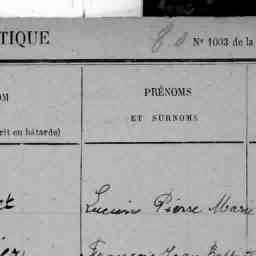 TIQUE
80 N° 1003 de la
OM
PRÉNOMS
ET SURNOMS
rit en bâtarde)
Lucien Pierre Marie
François Jean